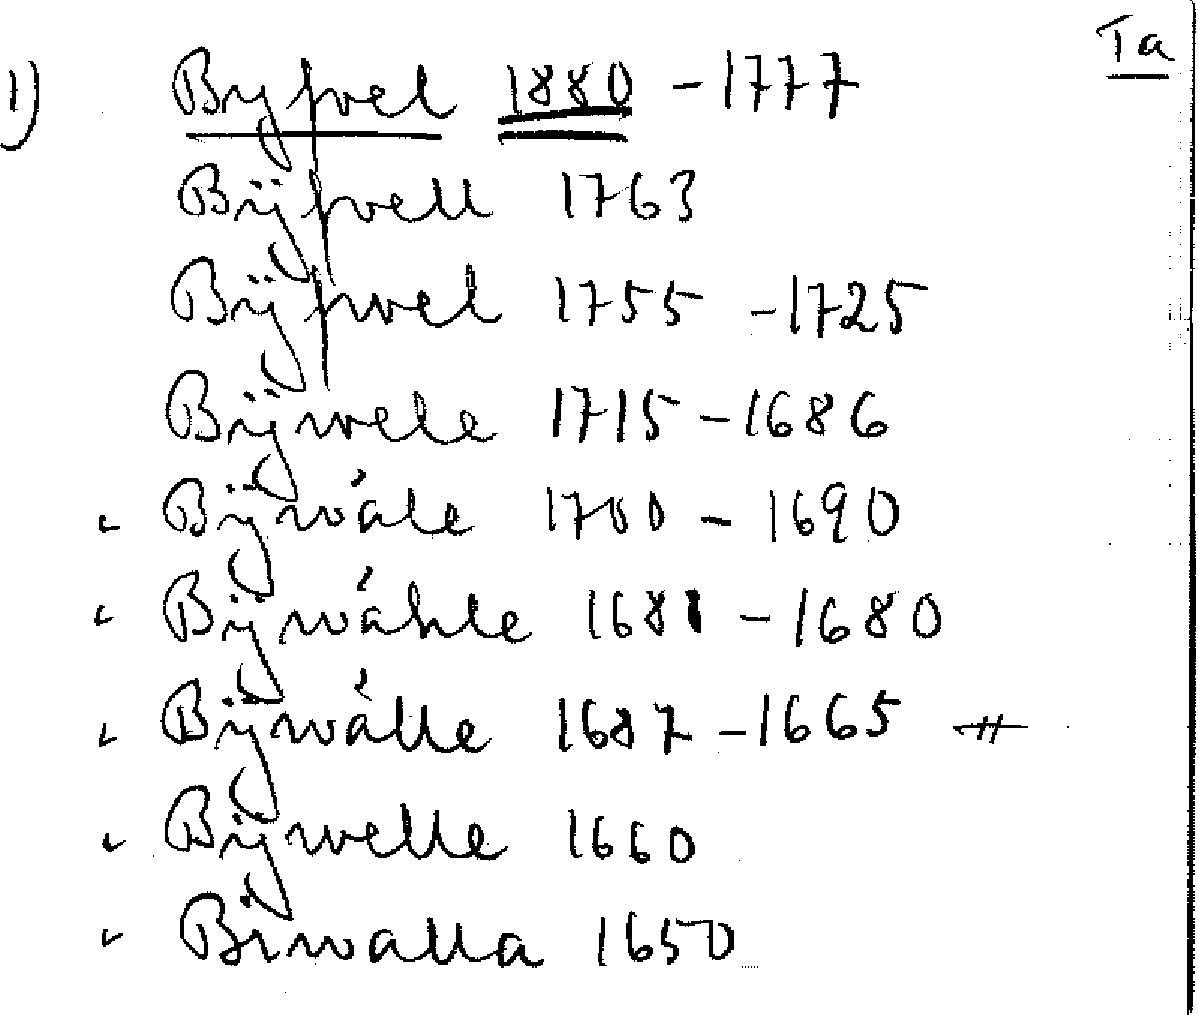 Ta
1) Byfvel 1880 - 1777
Bÿfvell 1763
Bÿfwel 1755 - 1725
Bÿwele 1715 - 1686
Bÿwåle 1700 - 1690
Bÿwåhle 1681 - 1680
Bÿwålle 1687 - 1665 #
Bÿwelle 1660
Biwalla 1650